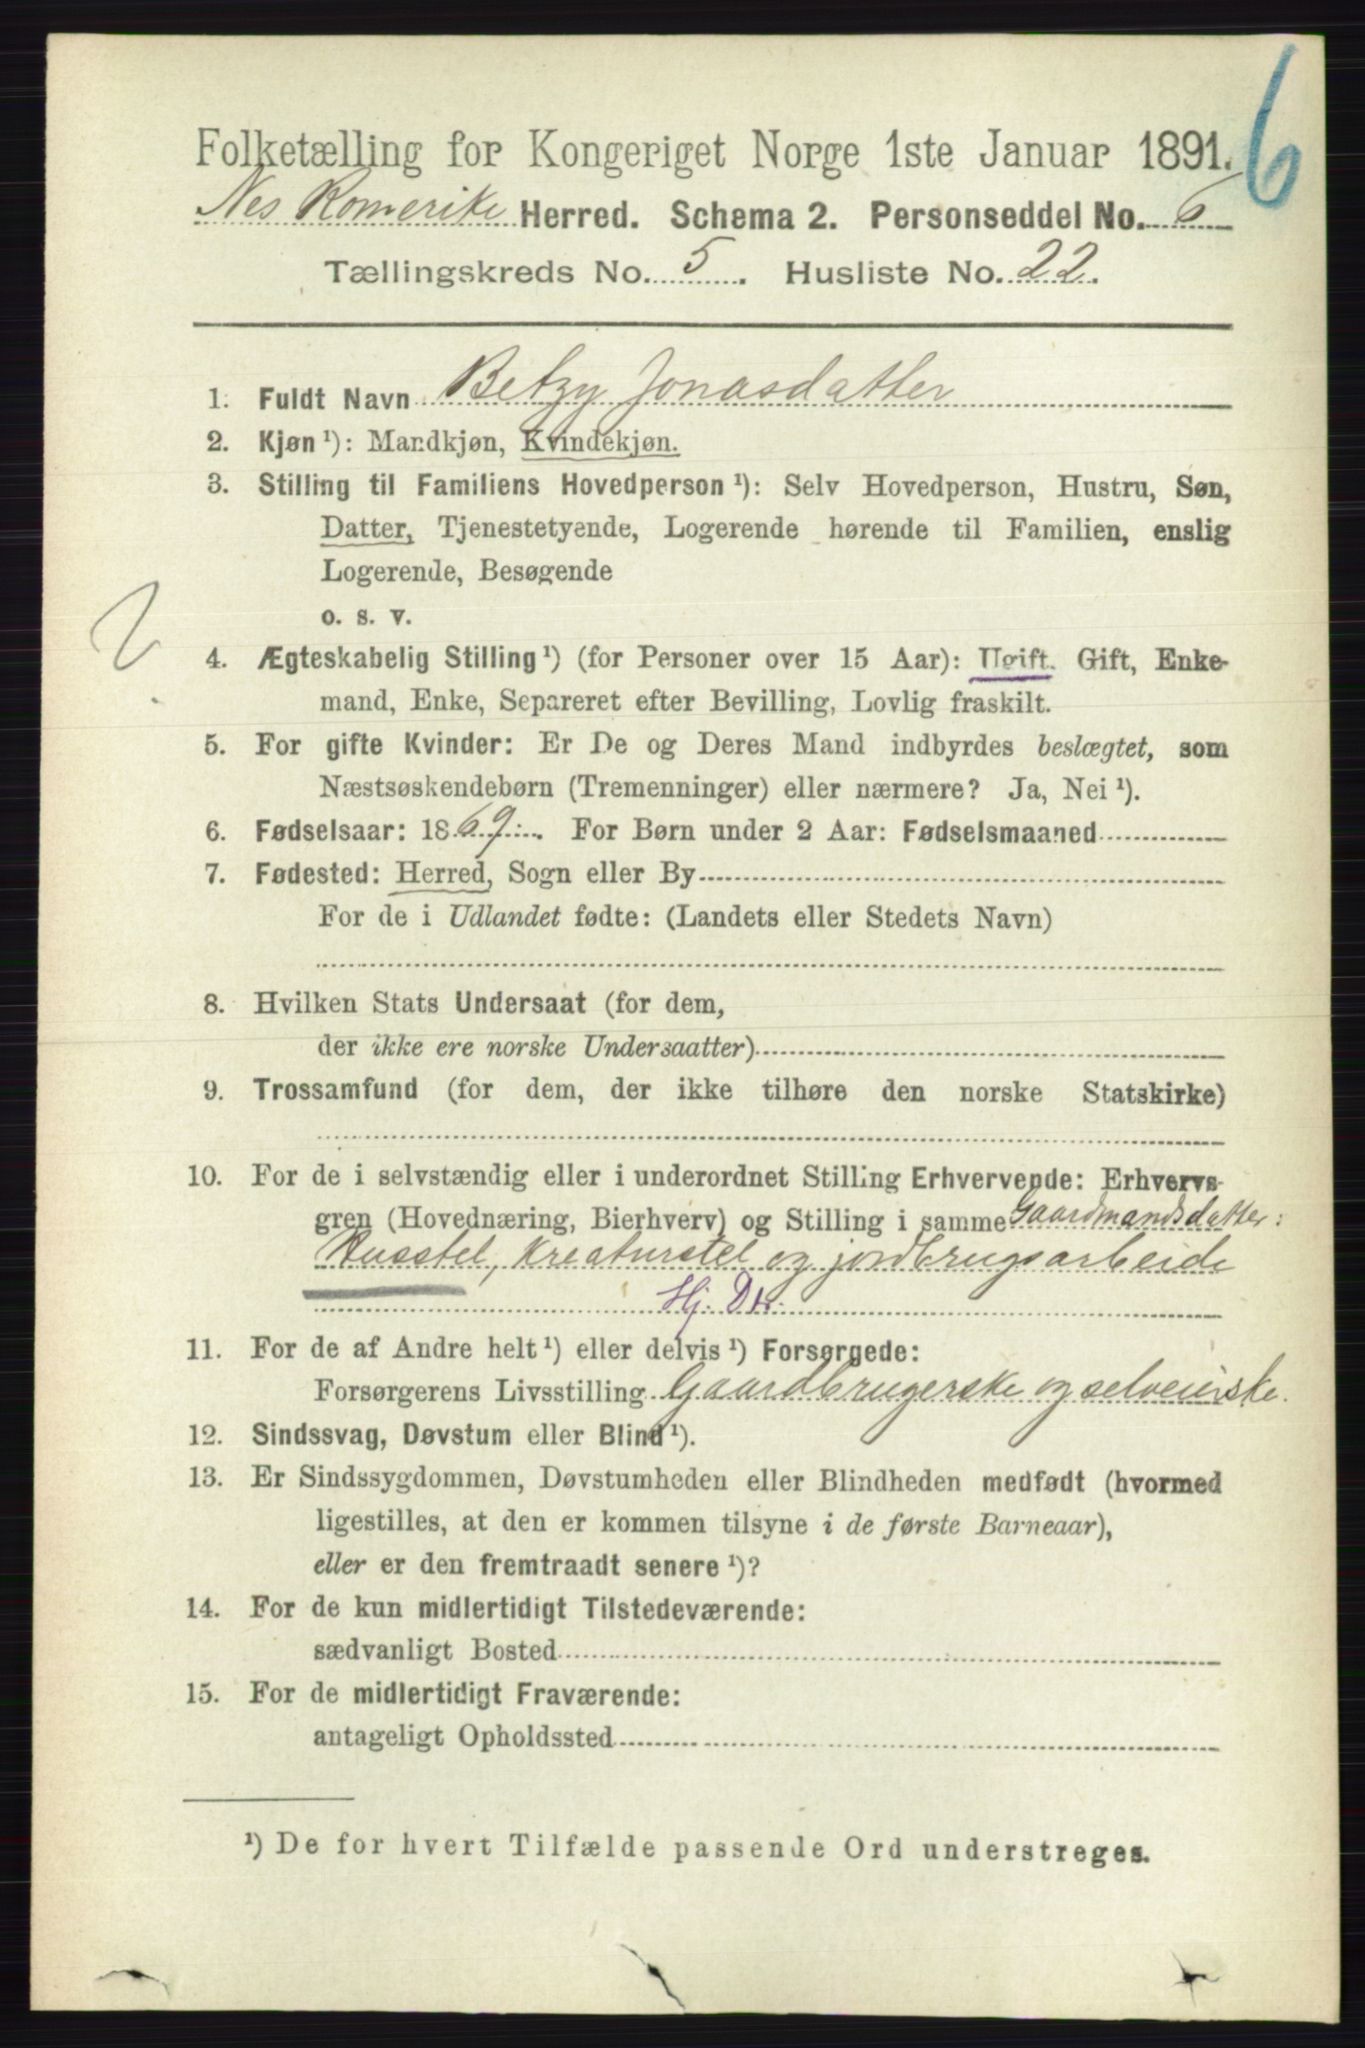 6
Folketælling for Kongeriget Norge 1ste Januar 1891.
Nes Romerike Herred. Schema 2. Personseddel No. 6
Tællingskreds No. 5. Husliste No. 22.
1. Fuldt Navn Betzy Jonasdatter
2. Kjøn ¹): Mandkjøn, Kvindekjøn.
3. Stilling til Familiens Hovedperson ¹): Selv Hovedperson, Hustru, Søn,
Datter, Tjenestetyende, Logerende hørende til Familien, enslig
Logerende, Besøgende
o. s. v.
4. Ægteskabelig Stilling ¹) (for Personer over 15 Aar): Ugift. Gift, Enke-
mand, Enke, Separeret efter Bevilling, Lovlig fraskilt.
5. For gifte Kvinder: Er De og Deres Mand indbyrdes beslægtet, som
Næstsøskendebørn (Tremenninger) eller nærmere? Ja, Nei ¹).
6. Fødselsaar: 1869. For Børn under 2 Aar: Fødselsmaaned
7. Fødested: Herred, Sogn eller By
For de i Udlandet fødte: (Landets eller Stedets Navn)
8. Hvilken Stats Undersaat (for dem,
der ikke ere norske Undersaatter)
9. Trossamfund (for dem, der ikke tilhøre den norske Statskirke)
10. For de i selvstændig eller i underordnet Stilling Erhvervende: Erhvervs-
gren (Hovednæring, Bierhverv) og Stilling i samme Gaardmandsdatter:
Husstel, Kreaturstel og jordbrugsarbeide
Hj. Dtr.
11. For de af Andre helt ¹) eller delvis ¹) Forsørgede:
Forsørgerens Livsstilling Gaardbrugerske og selveierske.
12. Sindssvag, Døvstum eller Blind ¹).
13. Er Sindssygdommen, Døvstumheden eller Blindheden medfødt (hvormed
ligestilles, at den er kommen tilsyne i de første Barneaar),
eller er den fremtraadt senere ¹)?
14. For de kun midlertidigt Tilstedeværende:
sædvanligt Bosted
15. For de midlertidigt Fraværende:
antageligt Opholdssted
¹) De for hvert Tilfælde passende Ord understreges.